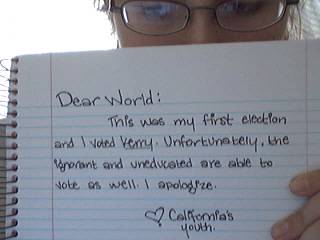 Dear World:
This was my first election
and I voted Kerry. Unfortunately, the
ignorant and uneducated are able to
vote as well. I apologize.
♡ California's
youth.